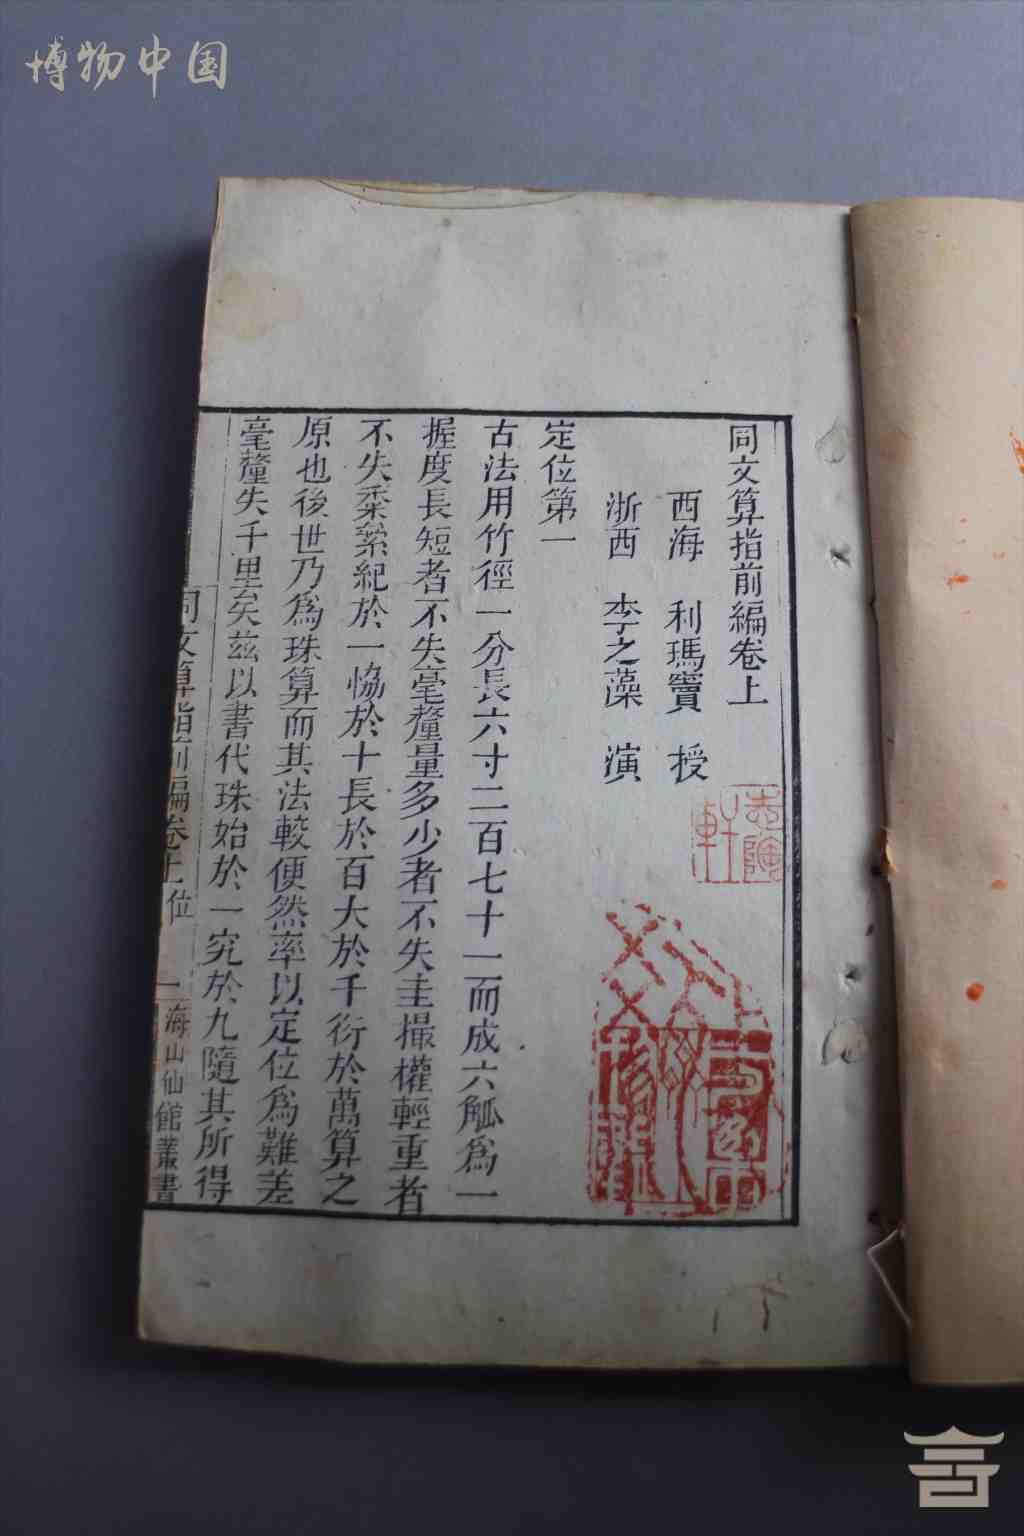 博物中国
同文算指前編卷上
西海 利瑪竇 授
浙西 李之藻 演
定位第一
古法用竹徑一分長六寸二百七十一而成六觚為一
握度長短者不失毫釐量多少者不失圭撮權輕重者
不失黍絫紀於一恊於十長於百大於千衍於萬算之
原也後世乃為珠算而其法較便然率以定位為難差
毫釐失千里矣茲以書代珠始於一究於九隨其所得
同文算指前編卷上 位 一 海山仙館叢書